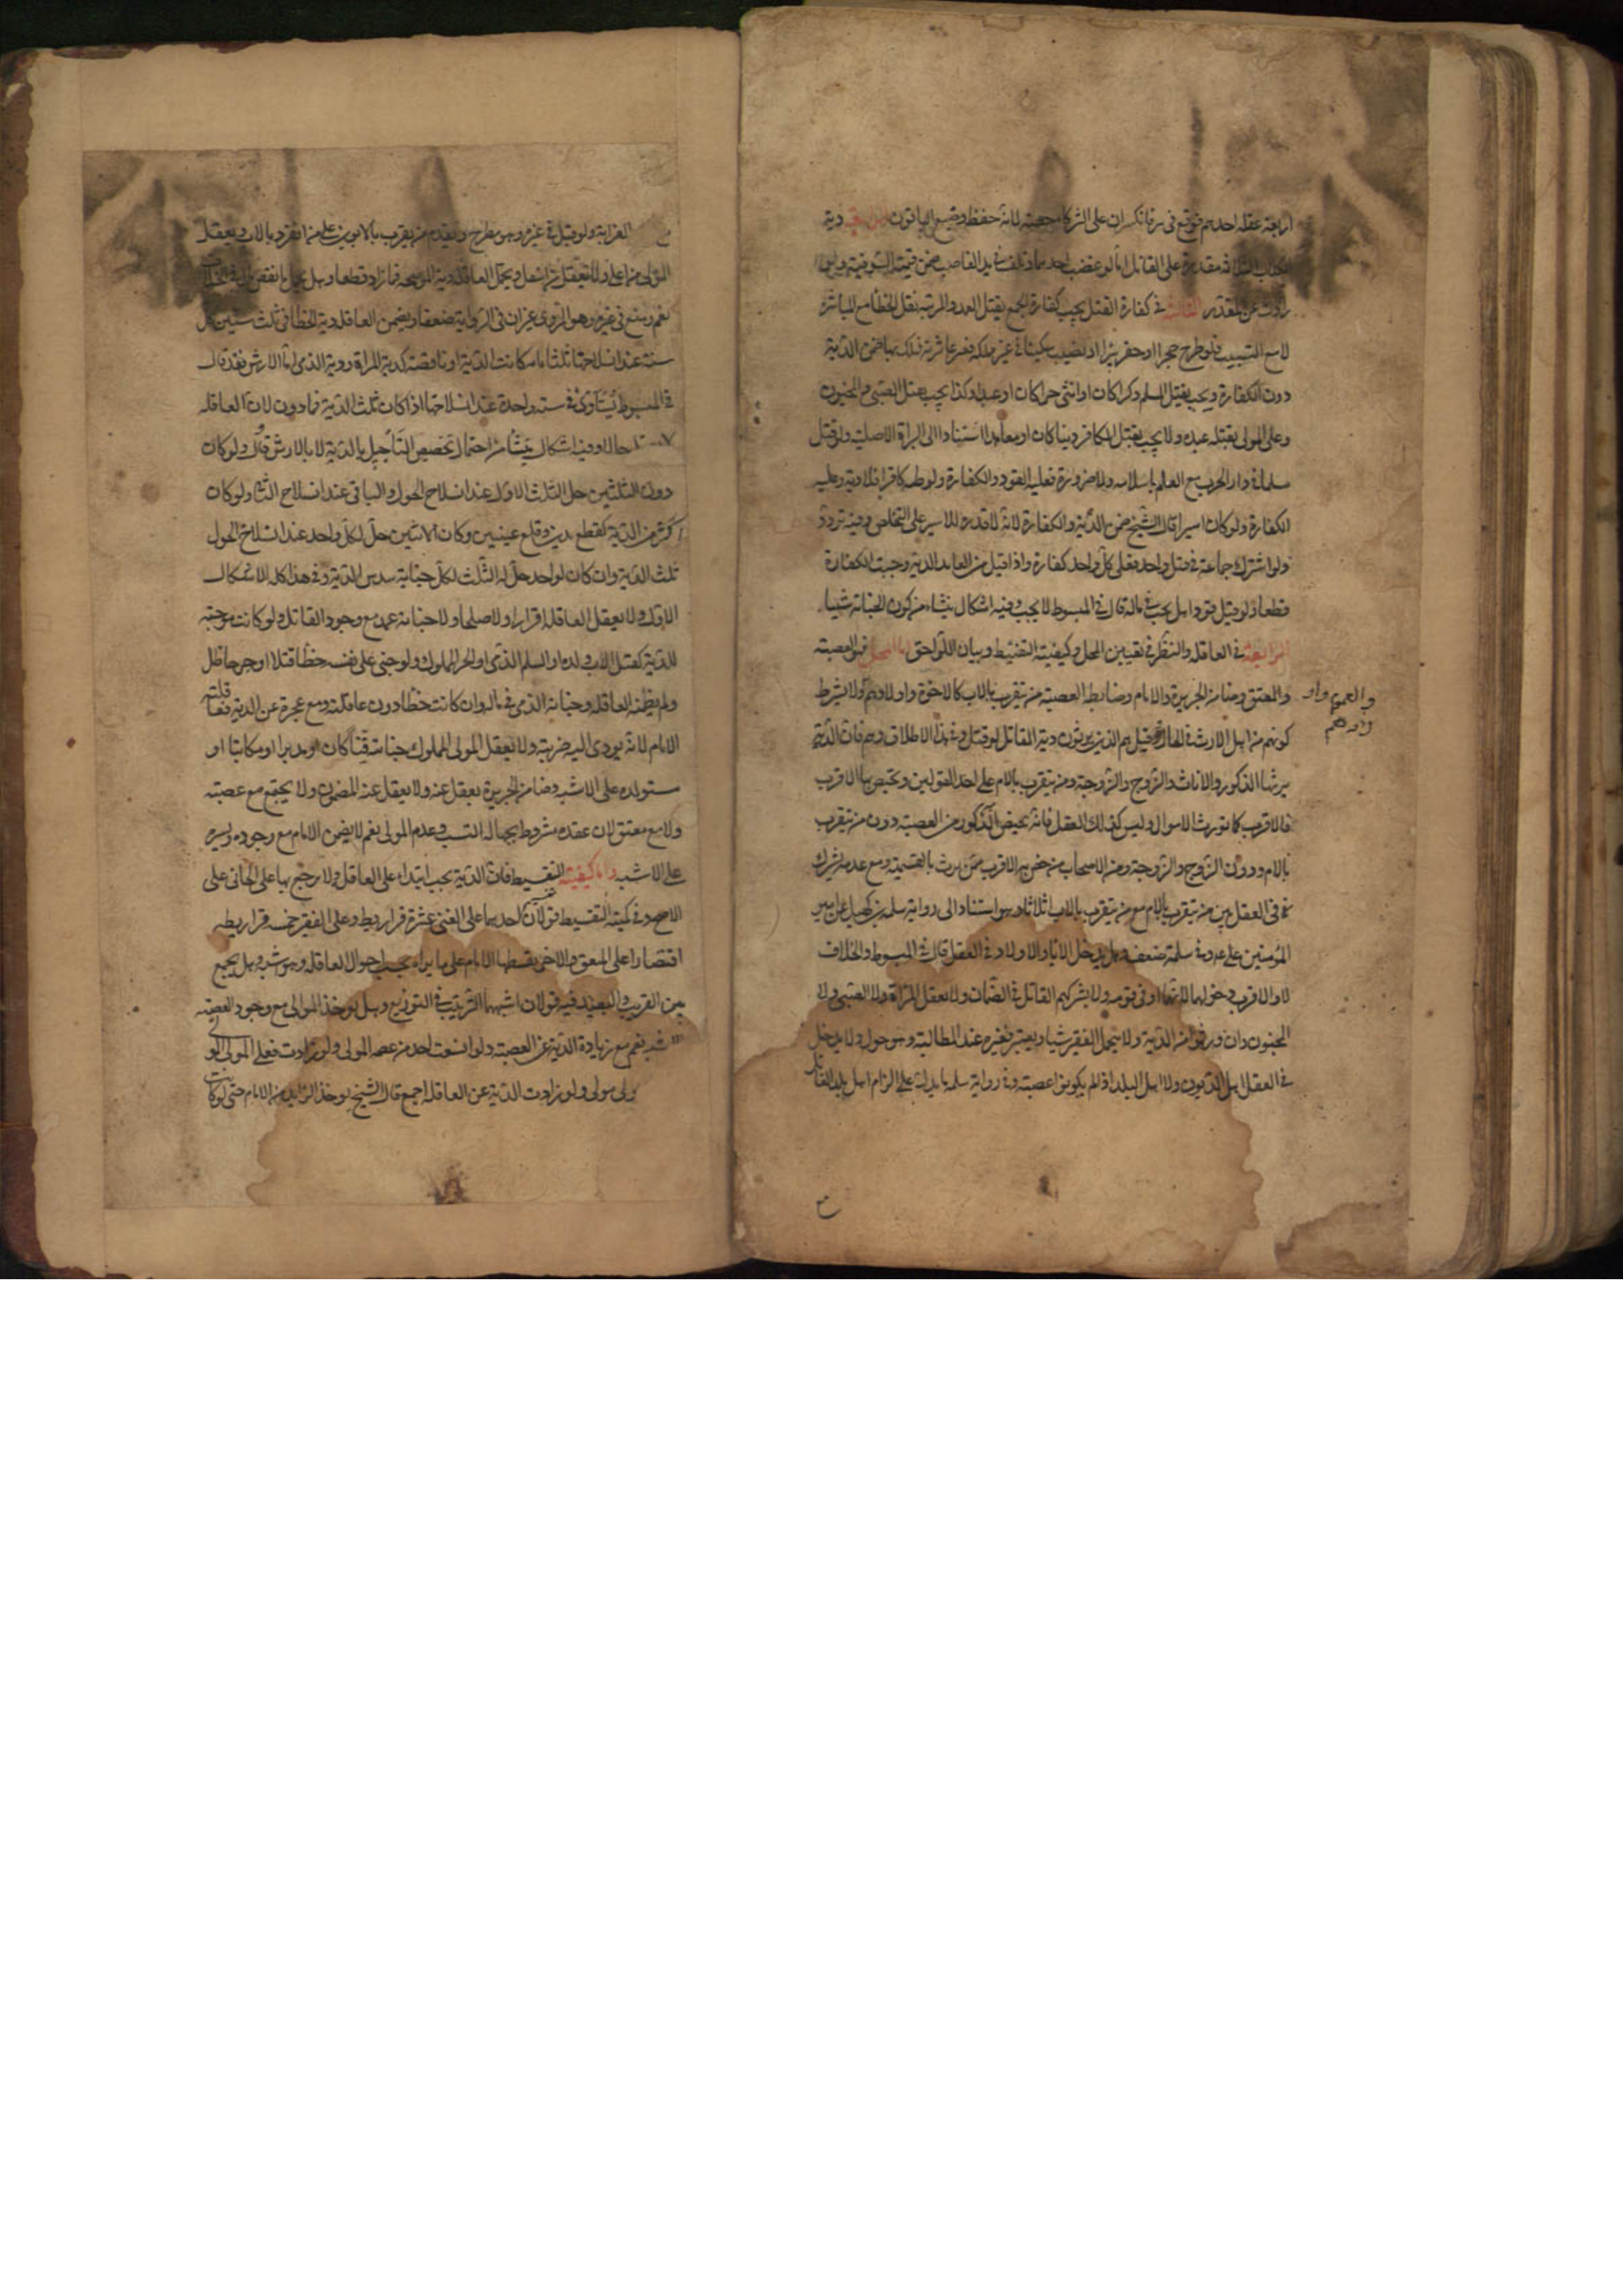 اربعة عقله احدهم فوقع في بئر فانكسر ان على الشركاء حصته لانه حفظ وضيع الباقون دية
الكلاب الثلاثة مقدرة على القاتل اما لو غصب احدها وتلف في يد الغاصب ضمن قيمته السوقية ولو
زادت عن المقدر الثالثة في كفارة القتل يجب كفارة الجمع بقتل العمد والمرتبة بقتل الخطأ مع المباشرة
لا مع التسبيب فلو طرح حجرا او حفر بئرا او نصب سكينا في غير ملكه فعثر عاثر فهلك بها ضمن الدية
دون الكفارة ويجب بقتل المسلم ذكرا كان او انثى حرا كان او عبدا وكذا يجب بقتل الصبي والمجنون
وعلى المولى بقتله عبده ولا يجب بقتل الكافر ذميا كان او معاهدا استنادا الى البراة الاصلية ولو قتل
مسلما في دار الحرب مع العلم باسلامه ولا ضرورة فعليه القود والكفارة ولو ظنه كافرا فلا دية وعليه
الكفارة ولو كان اسيرا قال الشيخ ضمن الدية والكفارة لانه لا قدرة للاسير على التخلص وفيه تردد
ولو اشترك جماعة في قتل واحد فعلى كل واحد كفارة واذا قبل من العامد الدية وجبت الكفارة
قطعا ولو قتل قودا هل يجب في ماله قال في المبسوط لا يجب وفيه اشكال ينشاء من كون الجناية سببا
الرابعة في العاقلة والنظر في تعيين المحل وكيفية التقسيط وبيان اللواحق اما المحل فهو العصبة
والمعتق وضامن الجريرة والامام وضابط العصبة من يتقرب بالاب كالاخوة واولادهم ولا يشترط
والعمومة واو
لادهم
كونهم من اهل الارث في الحال وقيل هم الذين يرثون دية القاتل لو قتل وفي هذا الاطلاق وهم فان الدية
يرثها الذكور والاناث والزوج والزوجة ومن يتقرب بالام على احد القولين ويختص بها الاقرب
فالاقرب كما تورث الاموال وليس كذلك العقل فانه يختص الذكور من العصبة دون من يتقرب
بالام ودون الزوج والزوجة ومن الاصحاب من خص به الاقرب ممن يرث بالتسمية ومع عدمه يشرك
في العقل بين من يتقرب بالام مع من يتقرب بالاب اثلاثا وهو استنادا الى رواية سلمة بن كهيل عن امير
المؤمنين علي ع وفي سلمة ضعف وهل يدخل الاباء والاولاد في العقل قال في المبسوط والخلاف
لا والاقرب دخولهما لانهما ادنى قومه ولا يشركهم القاتل في الضمان ولا تعقل المراة ولا الصبي ولا
المجنون وان ورثوا من الدية ولا يتحمل الفقير شيئا ويعتبر فقره عند المطالبة وهو حول ولا يدخل
في العقل اهل الديوان ولا اهل البلد اذا لم يكونوا عصبة وفي رواية سلمة ما يدل على الزام اهل بلد القاتل
القرابة ولو قتل في غيره وهو مطرح ويقدم من يتقرب بالابوين على من انفرد بالاب ويعقل
المولى من اعلى ولا يعقل من اسفل ويتحمل العاقلة دية الموضحة فما زاد قطعا وهل يحمل ما نقص قال في الخلاف
نعم ومنع في غيره وهو المروي غير ان في الرواية ضعفا ويضمن العاقلة دية الخطا في ثلث سنين كل
سنة عند انسلاخها ثلثا تامة كانت الدية او ناقصة كدية المراة ودية الذمي اما الارش فقد قال
في المبسوط يستأدى في سنة واحدة عند انسلاخها اذا كان ثلث الدية فما دون لان العاقلة
لا حالا وفيه اشكال ينشأ من احتمال تخصيص التأجيل بالدية لا بالارش قال ولو كان
دون الثلثين حل الثلث الاول عند انسلاخ الحول والباقي عند انسلاخ الثاني ولو كان
اكثر من الدية كقطع يدين وقلع عينين وكان لاثنين حل لكل واحد عند انسلاخ الحول
ثلث الدية وان كان لواحد حل له الثلث لكل جناية سدس الدية وفي هذا كله الاشكال
الاول ولا يعقل العاقلة اقرارا ولا صلحا ولا جناية عمد مع وجود القاتل ولو كانت موجبة
للدية كقتل الاب ولده او المسلم الذمي او الحر المملوك ولو جنى على نفسه خطأ قتلا او جرحا طل
ولم يضمنه العاقلة وجناية الذمي في ماله وان كانت خطأ دون عاقلته ومع عجزه عن الدية فعاقلته
الامام لانه يودي اليه ضريبته ولا يعقل المولى المملوك جناية قنا كان او مدبرا او مكاتبا او
مستولدة على الاشبه وضامن الجريرة يعقل عنه ولا يعقل عنه المضمون ولا يجتمع مع عصبة
ولا مع معتق لان عقده مشروط بجهالة النسب وعدم المولى نعم لا يضمن الامام مع وجوده ويسره
على الاشبه واما كيفية التقسيط فان الدية يجب ابتداء على العاقلة ولا يرجع بها على الجاني على
الاصح وفي كمية التقسيط قولان احدهما على الغني عشرة قراريط وعلى الفقير خمسة قراريط
اقتصارا على المتفق والاخر يقسطها الامام على ما يراه بحسب احوال العاقلة وهو اشبه وهل يجمع
بين القريب والبعيد فيه قولان اشبههما الترتيب في التوزيع وهل يوخذ الموالى مع وجود العصبة
الاشبه نعم مع زيادة الدية عن العصبة ولو اتسعت اخذ من عصبة المولى ولو زادت فعلى المولى
ولى مولى ولو زادت الدية عن العاقلة اجمع قال الشيخ يوخذ الزايد من الامام حتى لو كانت